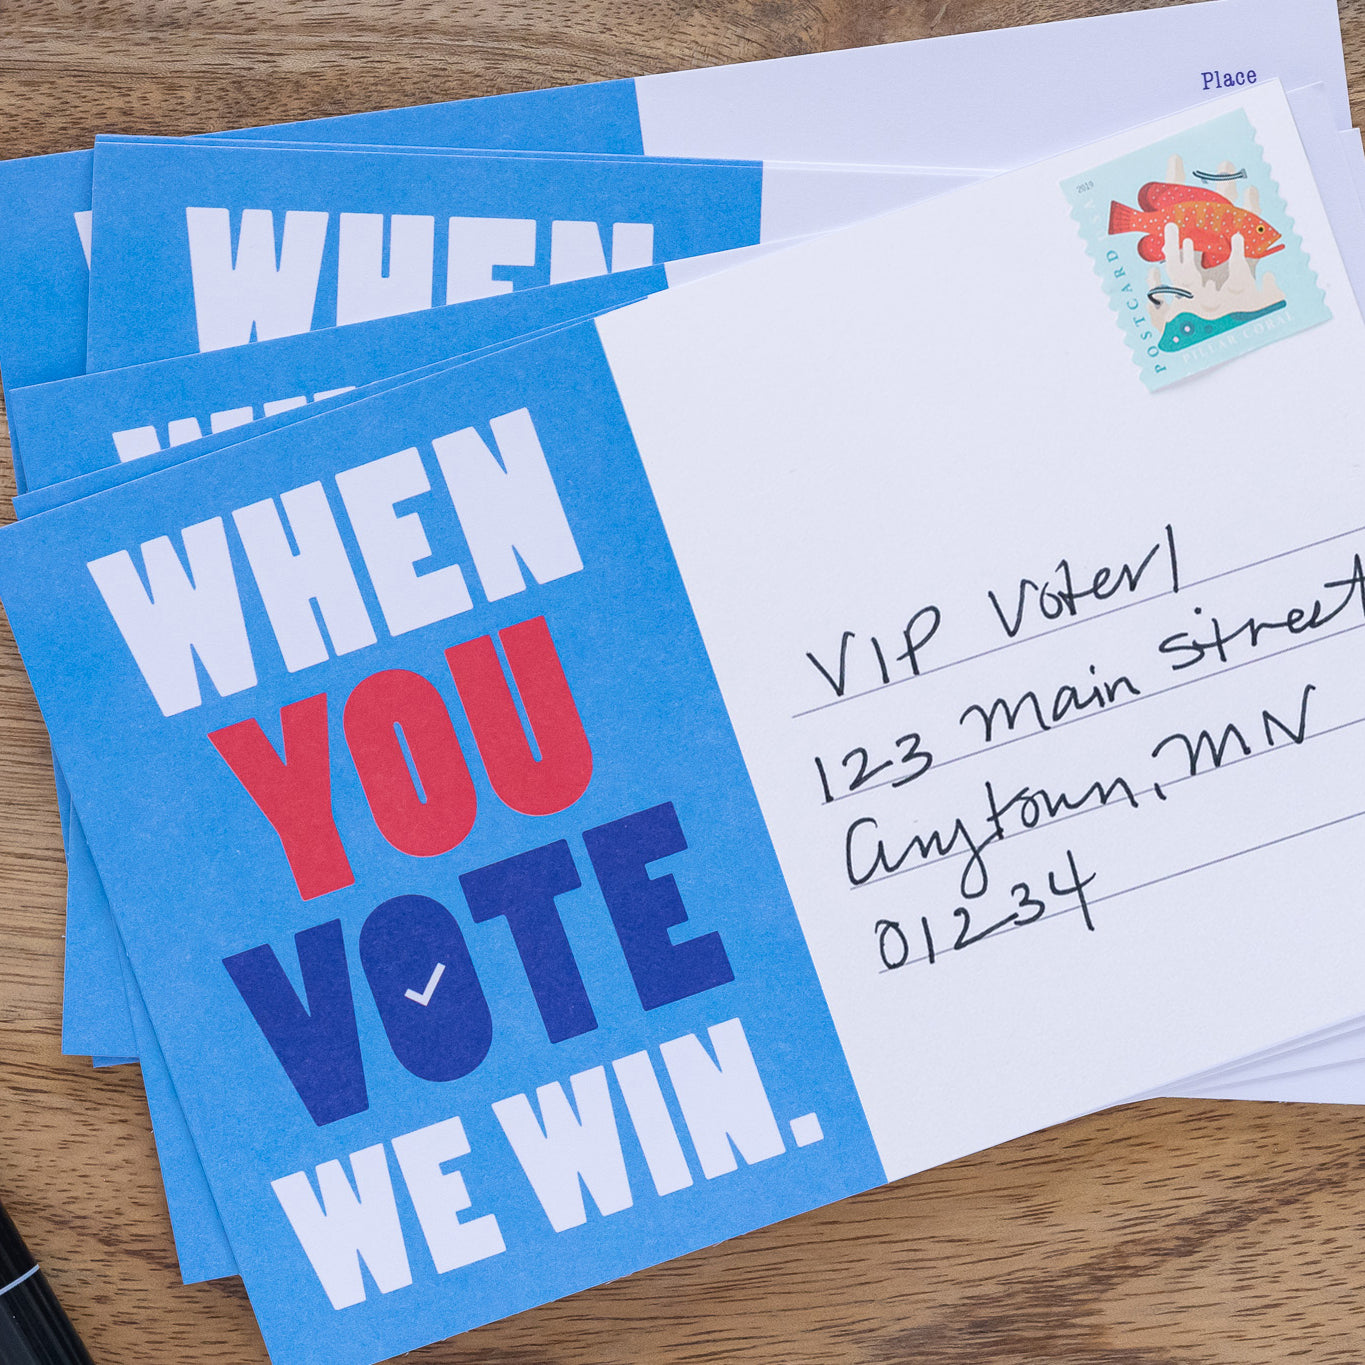 Place
WHEN
2019
USA
POSTCARD
PILLAR CORAL
WHEN
YOU
VOTE
WE WIN.
VIP Voter1
123 Main Street
Anytown, MN
01234